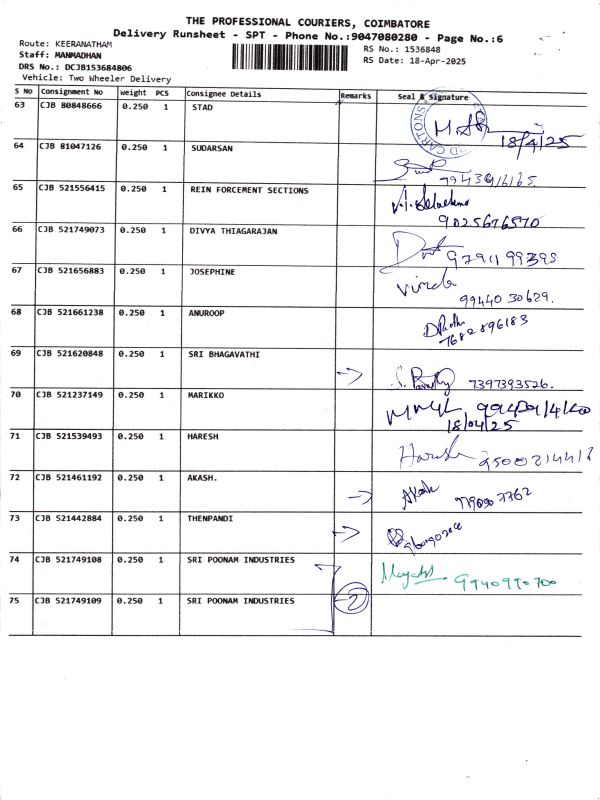 THE PROFESSIONAL COURIERS, COIMBATORE
Delivery Runsheet - SPT - Phone No.:9047080280 - Page No.:6
Route: KEERANATHAM
Staff: MANMADHAN
DRS No.: DCJB153684806
Vehicle: Two Wheeler Delivery
RS No.: 1536848
RS Date: 18-Apr-2025
S No Consignment No Weight PCS Consignee Details Remarks Seal & Signature
63 CJB 80848666 0.250 1 STAD
CARTONS
18/4/25
64 CJB 81047126 0.250 1 SUDARSAN
65 CJB 521556415 0.250 1 REIN FORCEMENT SECTIONS
9025676570
66 CJB 521749073 0.250 1 DIVYA THIAGARAJAN
9791199395
67 CJB 521656883 0.250 1 JOSEPHINE
9944030629.
68 CJB 521661238 0.250 1 ANUROOP
7682896183
69 CJB 521620848 0.250 1 SRI BHAGAVATHI
7397393526.
70 CJB 521237149 0.250 1 MARIKKO
18/04/25
71 CJB 521539493 0.250 1 HARESH
Haresh
72 CJB 521461192 0.250 1 AKASH.
Akash
73 CJB 521442884 0.250 1 THENPANDI
74 CJB 521749108 0.250 1 SRI POONAM INDUSTRIES
9940990700
75 CJB 521749109 0.250 1 SRI POONAM INDUSTRIES 2